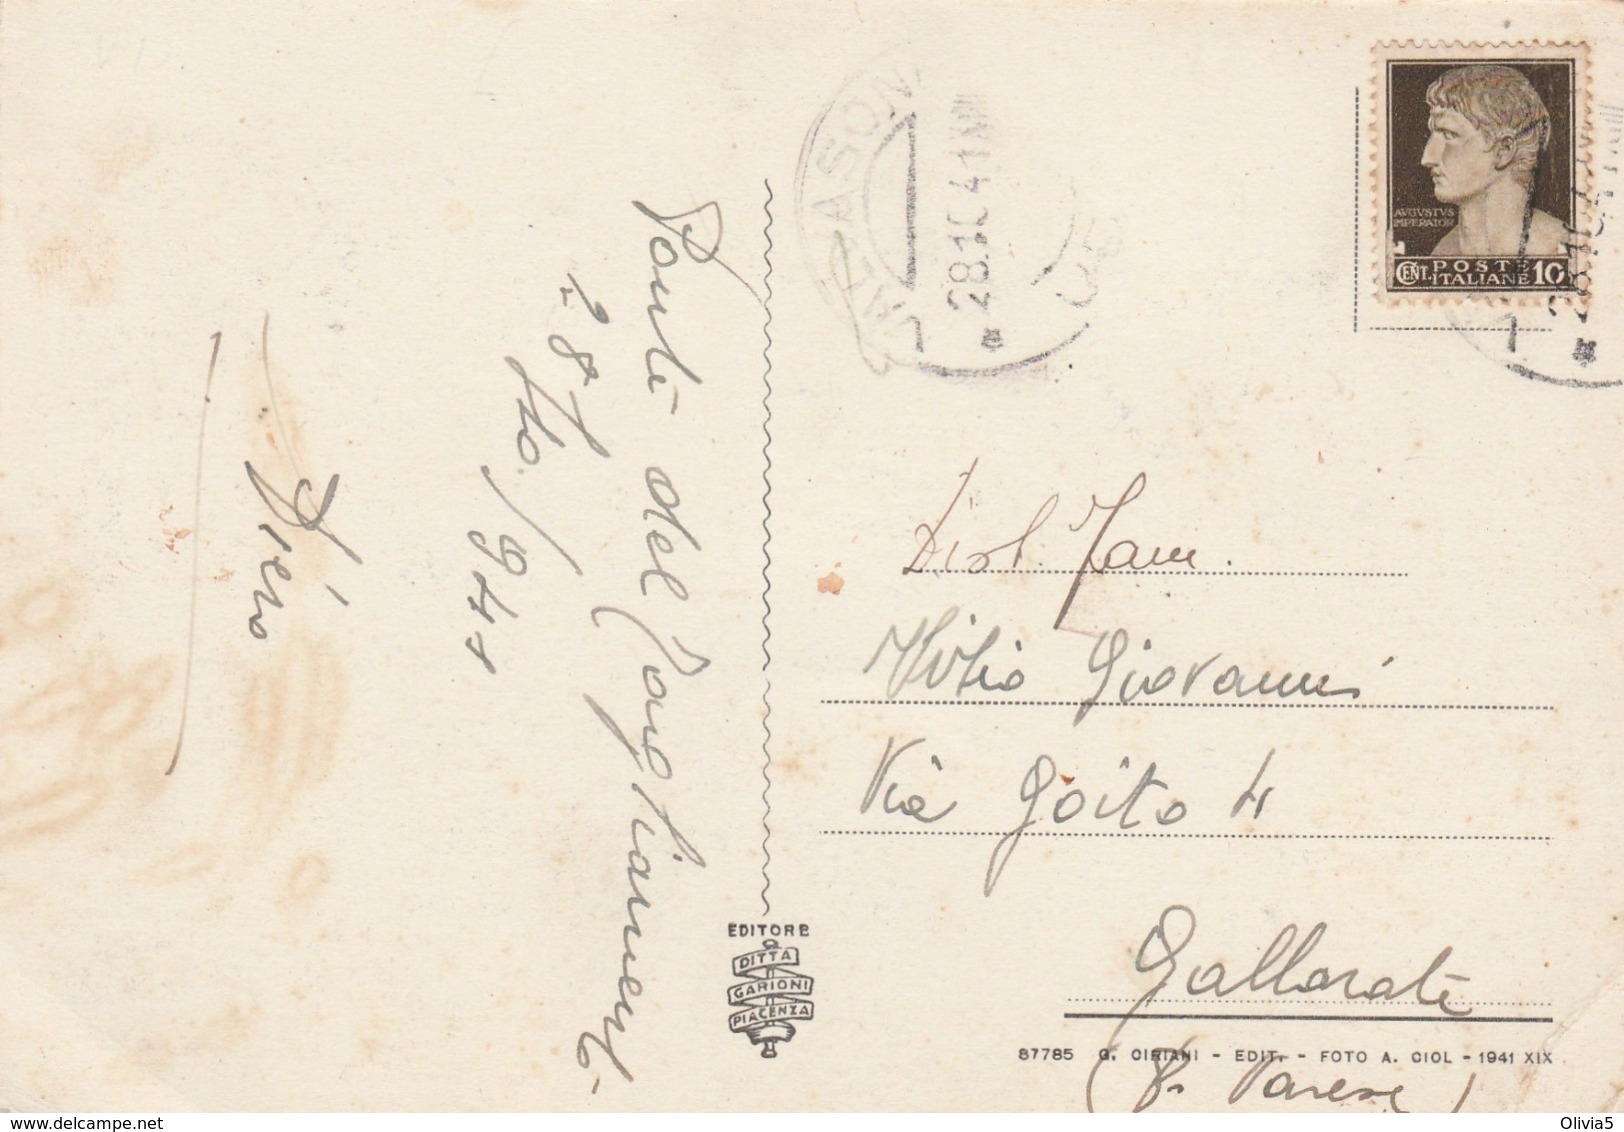 Ponte del Tagliamento
28/10/941
Piero
VALVASONE
28.10.41 XIX
1
AVGVSTVS
IMPERATOR
CENT. POSTE ITALIANE 10
28.10
1
Dist. Fam.
Giovanni
Via Goito 4
Gallarate
(P. Varese)
EDITORE
DITTA
GARIONI
PIACENZA
87785 G. CIRIANI - EDIT. - FOTO A. CIOL - 1941 XIX
delcampe.net
Olivia5